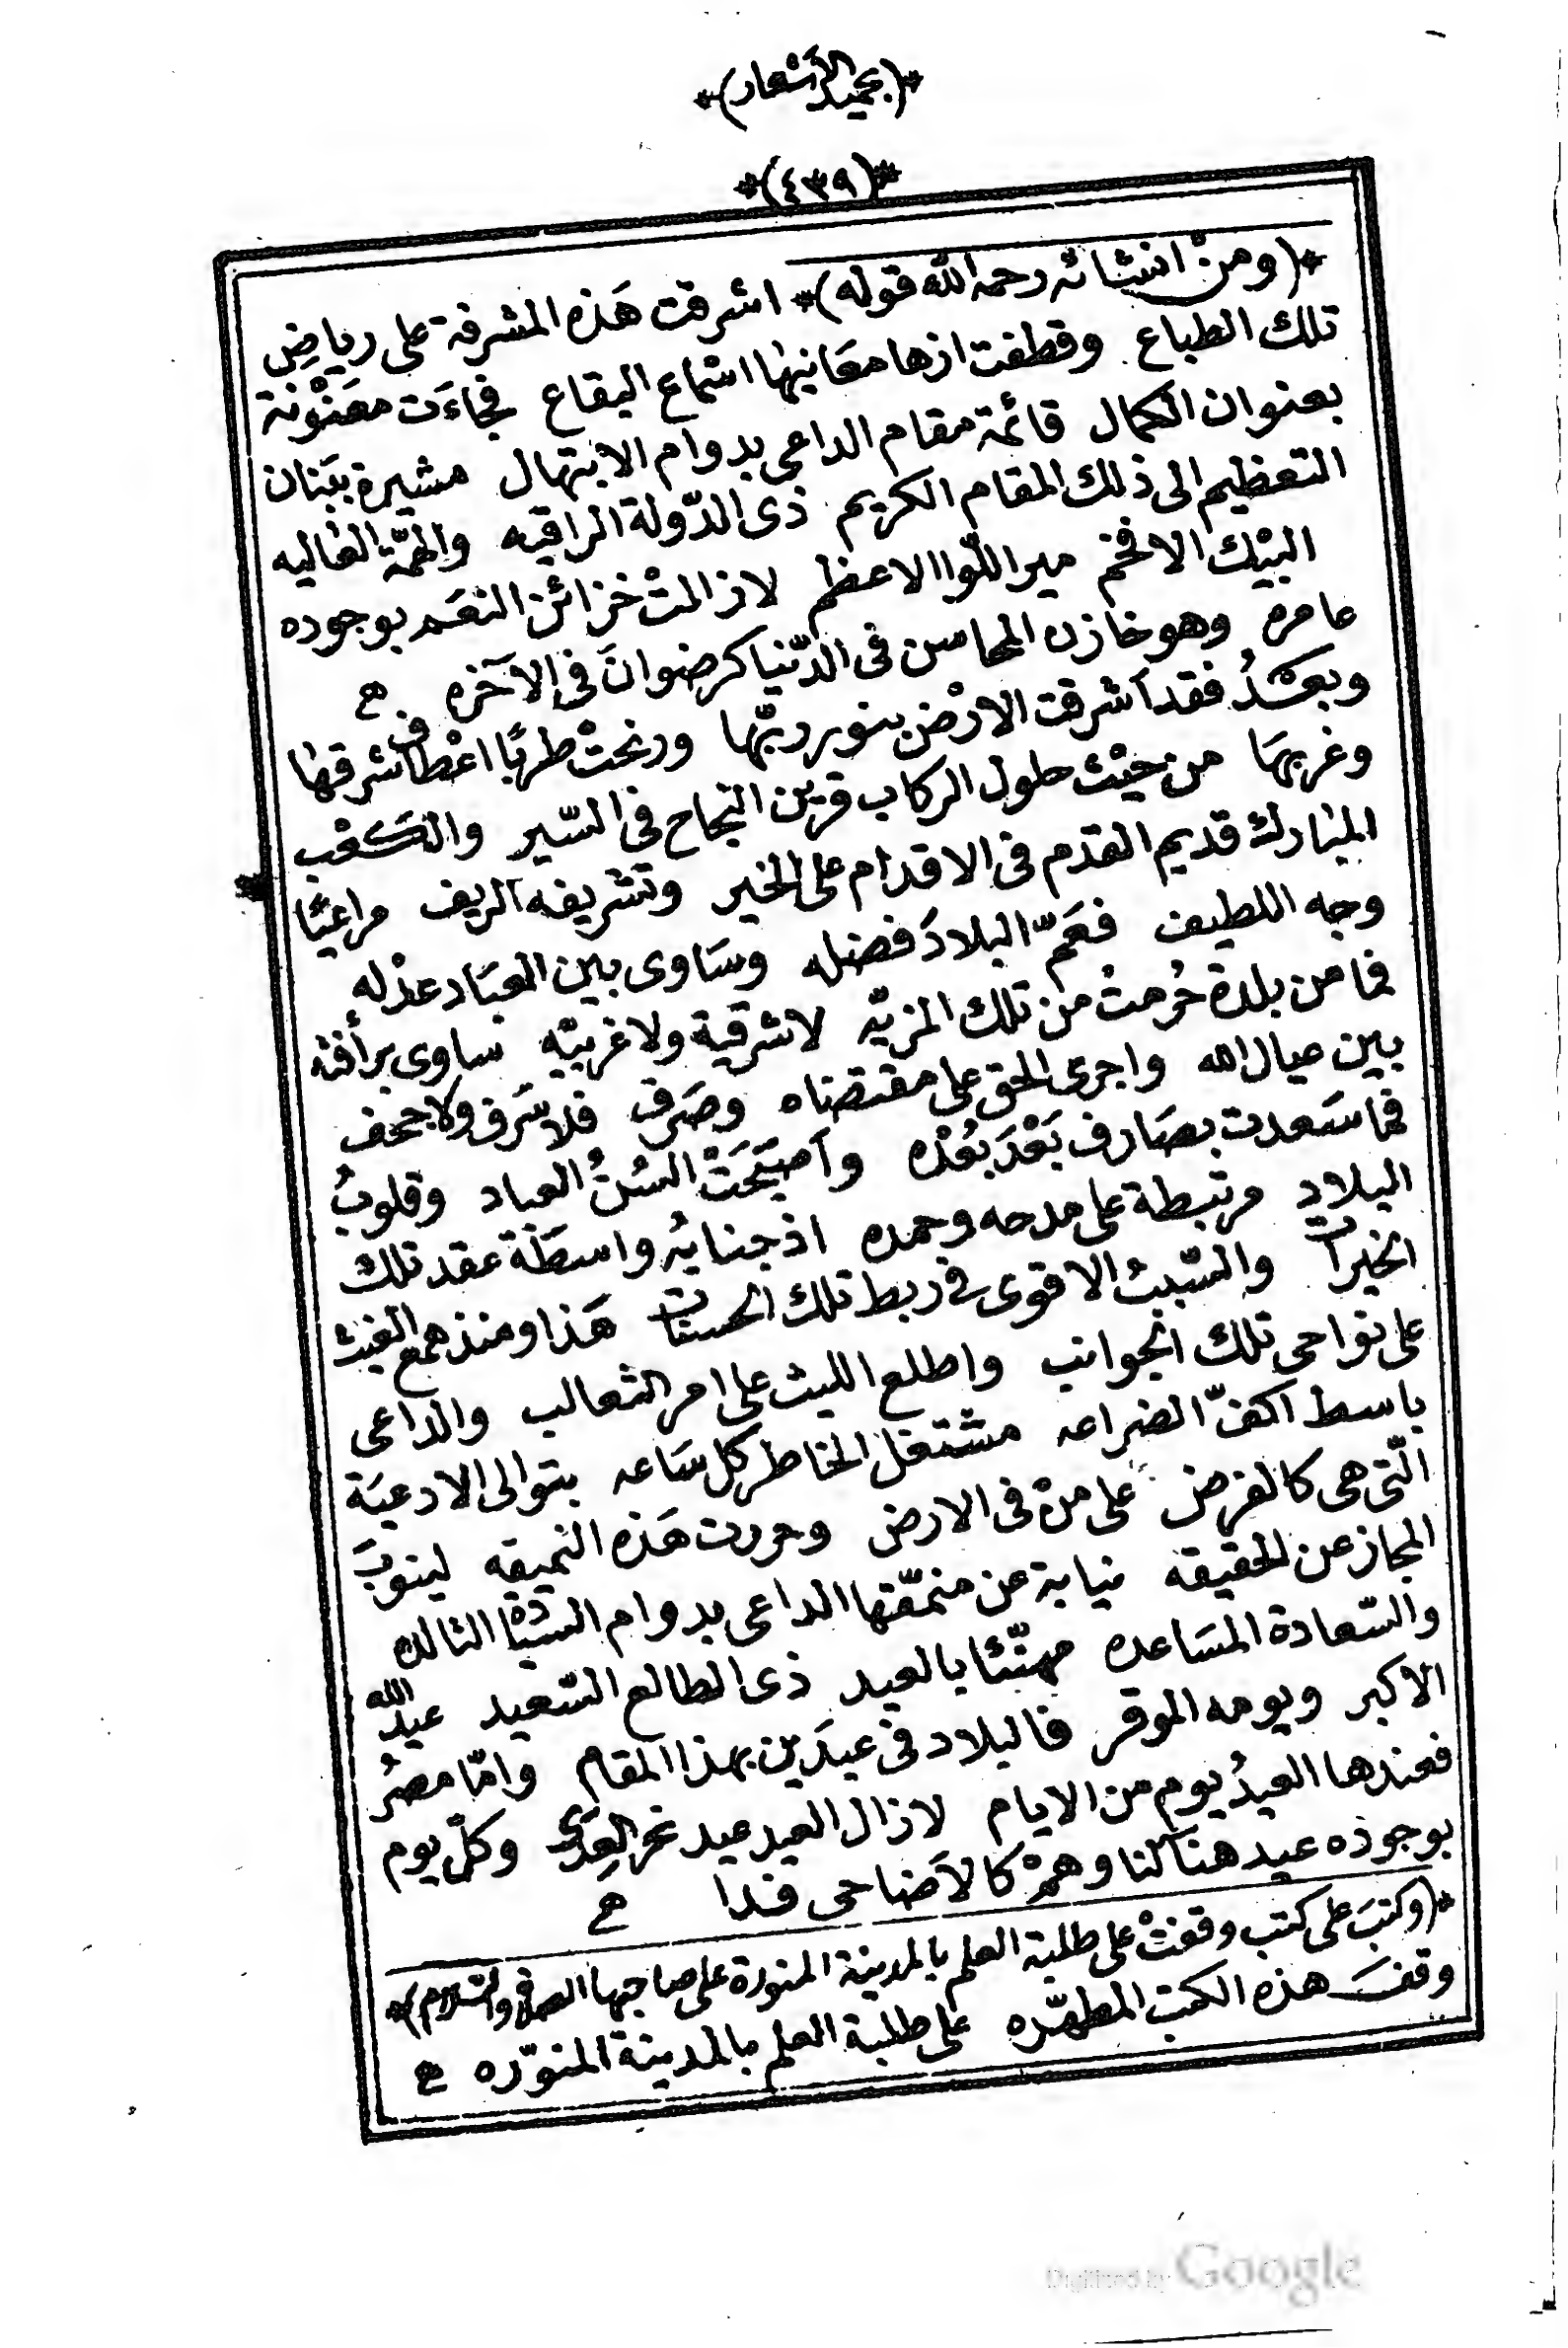 *(بحميد الأشعار)*
*(٤٣٩)*
*(ومن انشائه رحمه الله قوله)* اشرقت هَذه المشرفة على رياضِ
تلك الطباع وقطفت ازهار معَانيها اسْماع البقاع فجاءَت معَنْوَنة
بعنوان الكمال قائمة مقام الداعى بدوام الابتهال مشيرة ببَنان
التعظيم الى ذلك المقام الكريم ذى الدّولة الراقيه والهمّة العَاليه
البيْك الافخم مير اللّوا الاعظم لا زالتْ خزائن النعَم بوجوده
عامره وهو خازن المحاسن فى الدّنيا كرضوانَ فى الآخره
وبعْدُ فقد أشرقت الارْض بنور ربّها ورنحتْ طربًا اعْطاف شرقها
وغربهَا من حيْث حلول الركاب قرين النجاح فى السّير والكعْب
المبارك قديم القدَم فى الاقدام على الخير وتشريفه الريف مراعيًا
وجه اللطيف فعَمّ البلادَ فضله وسَاوى بين العبَاد عدْله
فما من بلدة حُرمتْ من تلك المزيّه لا شرقية ولا غربيّه ساوى برأفته
بين عيال الله واجرى الحق على مقتضاه وصَرف فلا سَرف ولا جحف
فما سَعدت بصَارف بَعْدَ بُعْده وأصبَحَتْ السُنُ العباد وقلوبُ
البلادِ مرتبطة على مدحه وحمده اذ جنابُه واسطَة عقد تلك
الخيرات والسّببُ الاقوى فى ربط تلك الحسنات هَذا ومنذ همع الغيث
على نواحى تلك الجوانب واطلع الليث على امر الثعالب والداعى
باسط اكفّ الضراعه مشتغل الخاطر كل سَاعه بتوالى الادعيَة
الّتى هى كالفرض على منْ فى الارض وحررت هَذه النميقه لينوبَ
المجاز عن الحقيقه نيابة عن منمّقها الداعى بدوام السّيادة التالده
والسّعادة المسَاعده مهنّئا بالعيد ذى الطالع السّعيد عيد الله
الاكبر ويومه الموقر فالبلاد فى عيدَين بهذا المقام وامّا مصرُ
فعندها العيدُ يوم من الايام لا زال العيد عيد نحر العِدَى وكلّ يوم
بوجوده عيد هنا لنا وهمْ كالأضاحى فدا
*(وكتبَ على كتب وقفتْ على طلبة العلم بالمدينة المنورة على صاحبها الصلاة والسّلام)*
وقفَ هذه الكتب المطهّره على طلبة العلم بالمدينة المنوّره
Digitized by Google